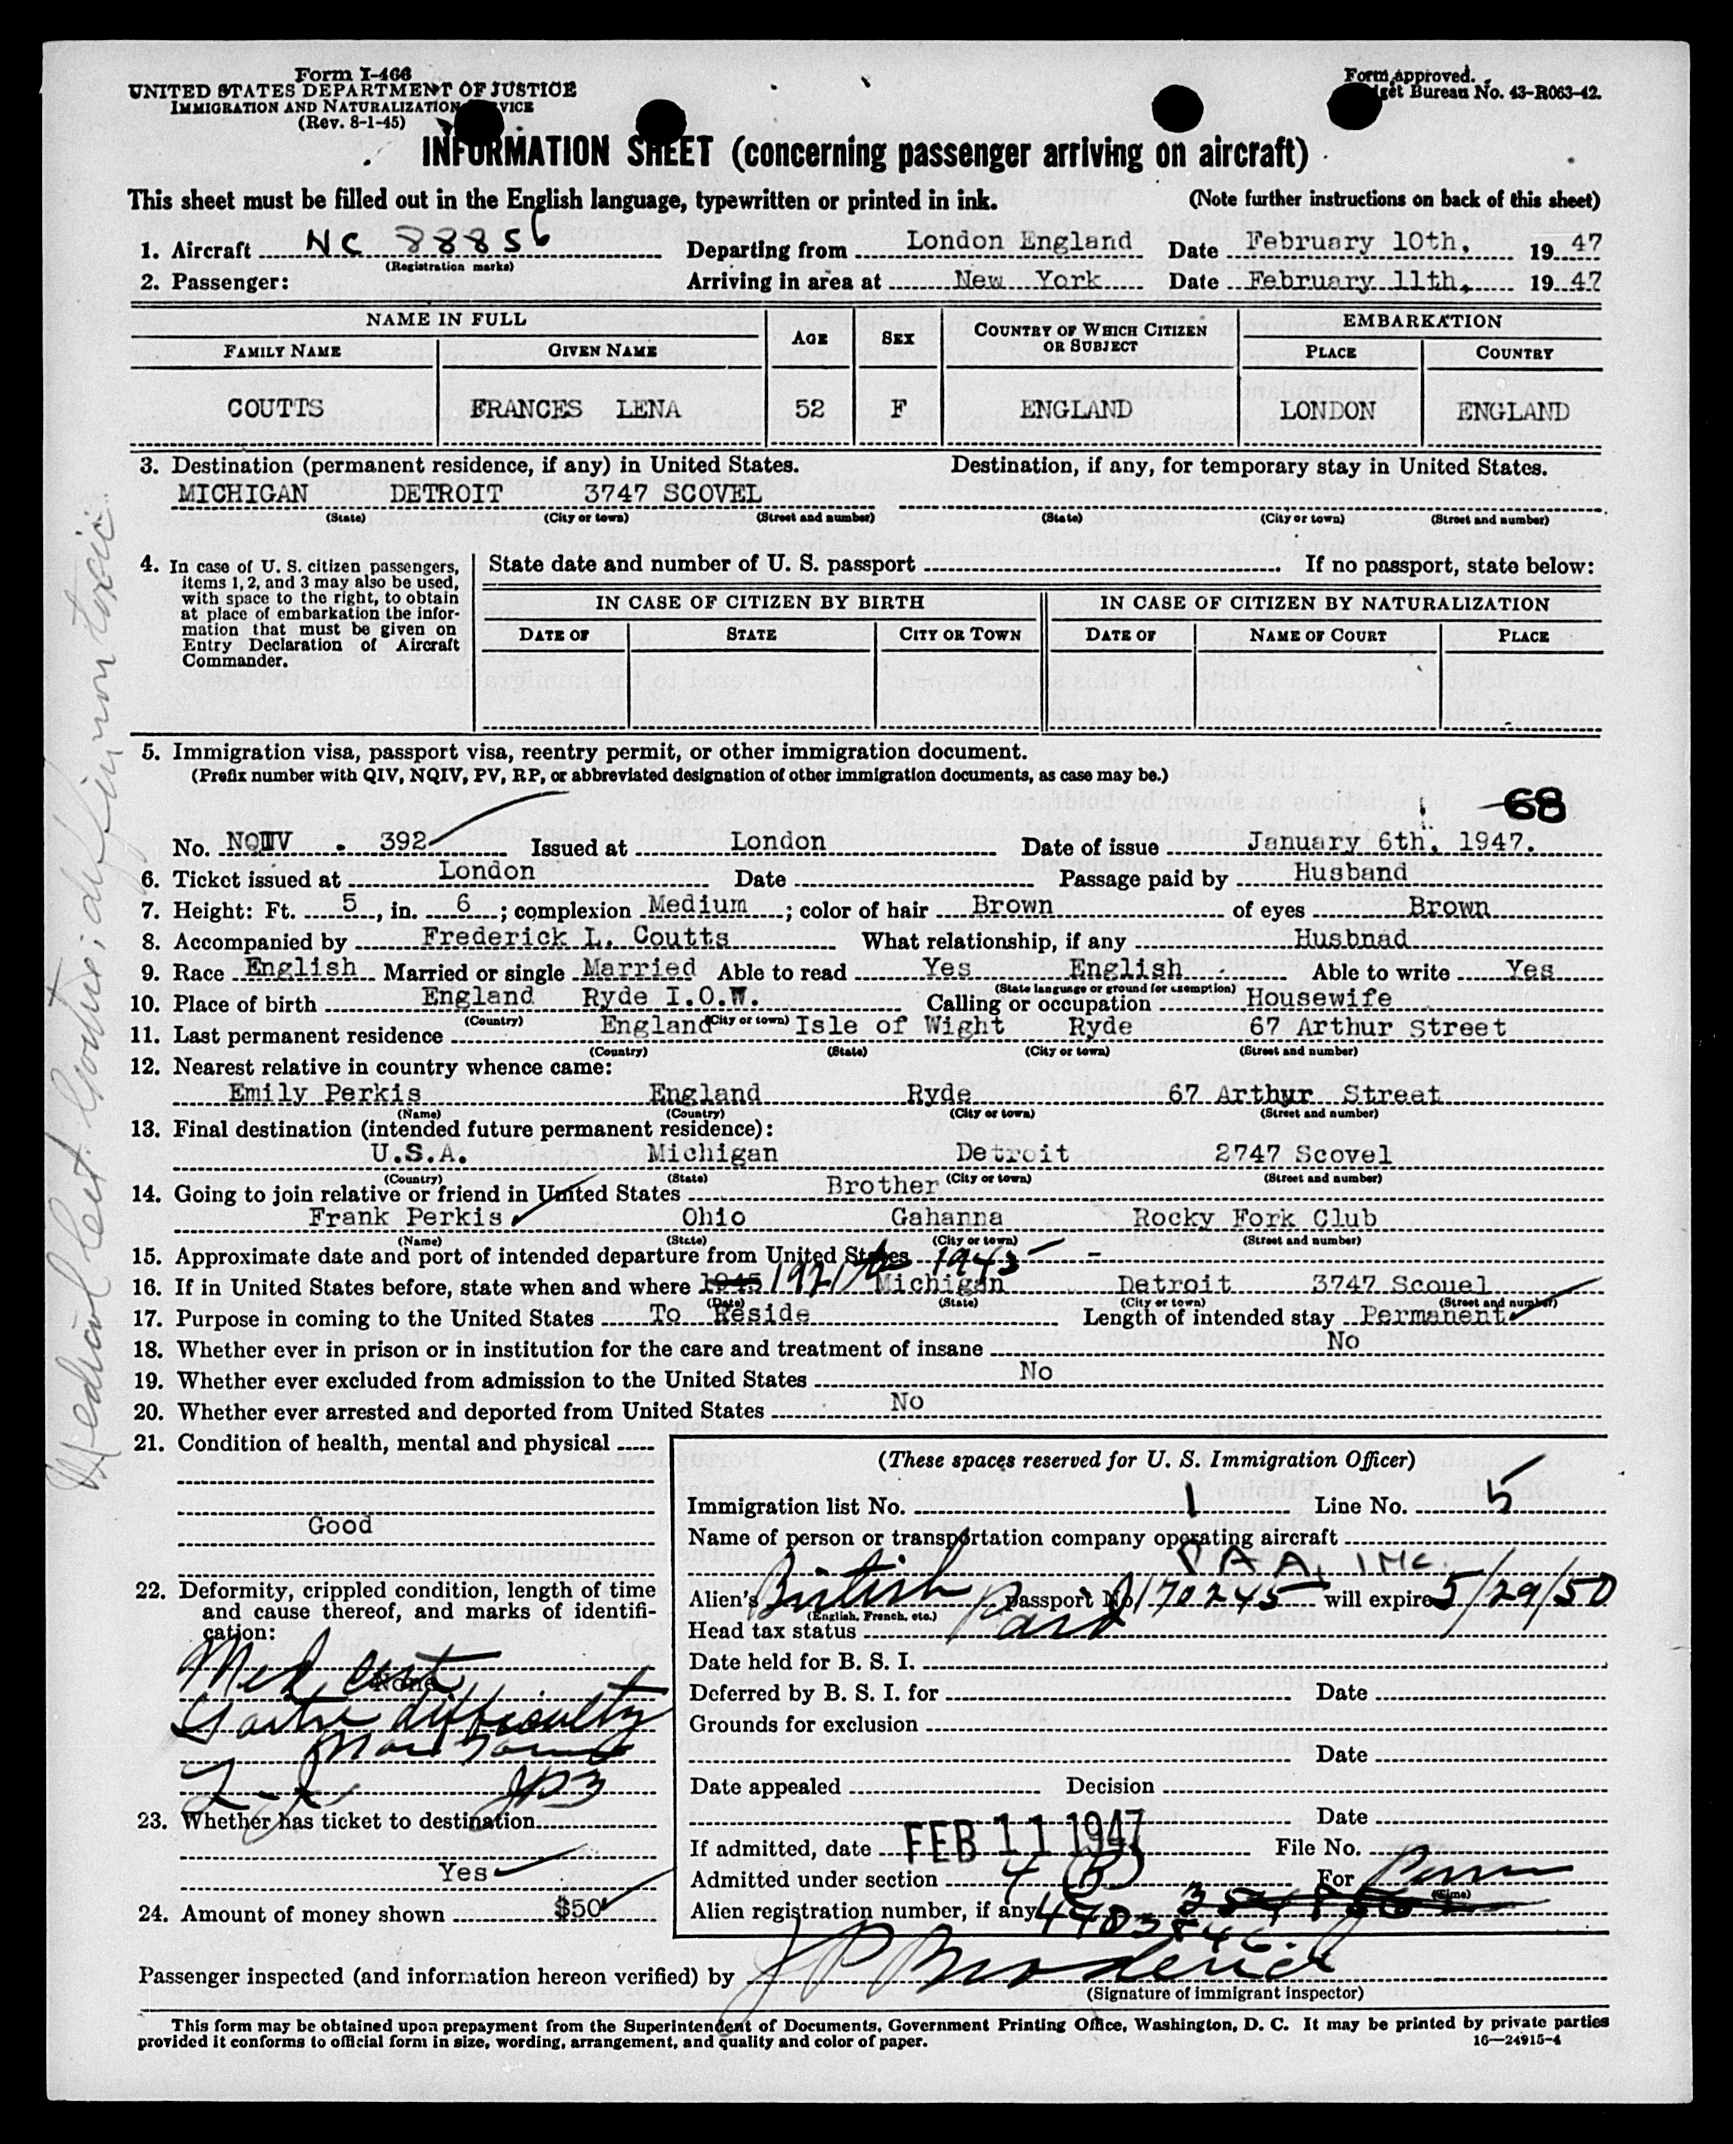 Form I-466
UNITED STATES DEPARTMENT OF JUSTICE
IMMIGRATION AND NATURALIZATION
(Rev. 8-1-45)
Form approved.
Bureau No. 43-R063-42.
INFORMATION SHEET (concerning passenger arriving on aircraft)
This sheet must be filled out in the English language, typewritten or printed in ink. (Note further instructions on back of this sheet)
1. Aircraft NC 88856 Departing from London England Date February 10th, 1947
(Registration marks)
2. Passenger: Arriving in area at New York Date February 11th, 1947
NAME IN FULL AGE SEX COUNTRY OF WHICH CITIZEN OR SUBJECT EMBARKATION
FAMILY NAME GIVEN NAME PLACE COUNTRY
COUTTS FRANCES LENA 52 F ENGLAND LONDON ENGLAND
3. Destination (permanent residence, if any) in United States. Destination, if any, for temporary stay in United States.
MICHIGAN DETROIT 3747 SCOVEL
(State) (City or town) (Street and number) (State) (City or town) (Street and number)
4. In case of U. S. citizen passengers, items 1, 2, and 3 may also be used, with space to the right, to obtain at place of embarkation the information that must be given on Entry Declaration of Aircraft Commander.
State date and number of U. S. passport If no passport, state below:
IN CASE OF CITIZEN BY BIRTH IN CASE OF CITIZEN BY NATURALIZATION
DATE OF STATE CITY OR TOWN DATE OF NAME OF COURT PLACE
5. Immigration visa, passport visa, reentry permit, or other immigration document.
(Prefix number with QIV, NQIV, PV, RP, or abbreviated designation of other immigration documents, as case may be.)
68
No. NQIV . 392 Issued at London Date of issue January 6th, 1947.
6. Ticket issued at London Date Passage paid by Husband
7. Height: Ft. 5, in. 6; complexion Medium; color of hair Brown of eyes Brown
8. Accompanied by Frederick L. Coutts What relationship, if any Husbnad
9. Race English Married or single Married Able to read Yes English Able to write Yes
(State language or ground for exemption)
10. Place of birth England Ryde I.O.W. Calling or occupation Housewife
(Country) (City or town)
11. Last permanent residence England Isle of Wight Ryde 67 Arthur Street
(Country) (State) (City or town) (Street and number)
12. Nearest relative in country whence came:
Emily Perkis England Ryde 67 Arthur Street
(Name) (Country) (City or town) (Street and number)
13. Final destination (intended future permanent residence):
U.S.A. Michigan Detroit 2747 Scovel
(Country) (State) (City or town) (Street and number)
14. Going to join relative or friend in United States Brother
Frank Perkis Ohio Gahanna Rocky Fork Club
(Name) (State) (City or town) (Street and number)
15. Approximate date and port of intended departure from United States
16. If in United States before, state when and where 1945 1921 to 1945 Michigan Detroit 3747 Scouel
(Date) (State) (City or town) (Street and number)
17. Purpose in coming to the United States To Reside Length of intended stay Permanent
18. Whether ever in prison or in institution for the care and treatment of insane No
19. Whether ever excluded from admission to the United States No
20. Whether ever arrested and deported from United States No
21. Condition of health, mental and physical
Good
22. Deformity, crippled condition, length of time and cause thereof, and marks of identification:
None
Med cert
difficulty
23. Whether has ticket to destination
Yes
24. Amount of money shown $50
(These spaces reserved for U. S. Immigration Officer)
Immigration list No. 1 Line No. 5
Name of person or transportation company operating aircraft
P A A, INC.
Alien's British passport No. 170245 will expire 5/29/50
(English, French, etc.)
Head tax status Paid
Date held for B. S. I.
Deferred by B. S. I. for Date
Grounds for exclusion
Date
Date appealed Decision
Date
If admitted, date FEB 11 1947 File No.
Admitted under section 4 (B) For Perm
(Time)
Alien registration number, if any
Passenger inspected (and information hereon verified) by J P Broderick
(Signature of immigrant inspector)
This form may be obtained upon prepayment from the Superintendent of Documents, Government Printing Office, Washington, D. C. It may be printed by private parties
provided it conforms to official form in size, wording, arrangement, and quality and color of paper. 16—24915-4
Medical cert